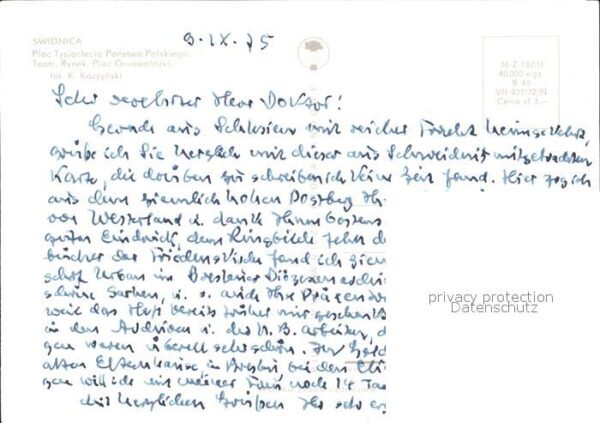 9.IX.75
SWIDNICA
Plac Tysiąclecia Państwa Polskiego.
Teatr. Rynek. Plac Grunwaldzki.
fot. K. Kaczyński
36-Z-182/II
40 000 egz
R 45
VII-927/72/N
Cena zł 3,-
Sehr verehrter Herr Doktor!
Gerade aus Schlesien mit reicher Fracht heimgekehrt,
grüße ich Sie herzlich mit dieser aus Schweidnitz mitgebrachten
Karte, die drüben zu schreiben ich keine Zeit fand. Hier zog ich
aus dem ziemlich hohen Postberg Ih
von Westerland u. danke Ihnen bestens
guten Eindruck, dem Ringbilde fehlt d
bücher der Friedenskirche fand ich
Urban im Breslauer Diözesanarchi
Sachen, u. a. auch Ihre
weil das Heft bereits früher mir geschenkt
in den Archiven u. der U. B. arbeiten, d
gen waren überall sehr schön. Zur
alten Elternhause in bei den
gen will ich mit meiner Frau noch 14 Ta
Mit herzlichen Grüßen Ihr sehr er
privacy protection
Datenschutz